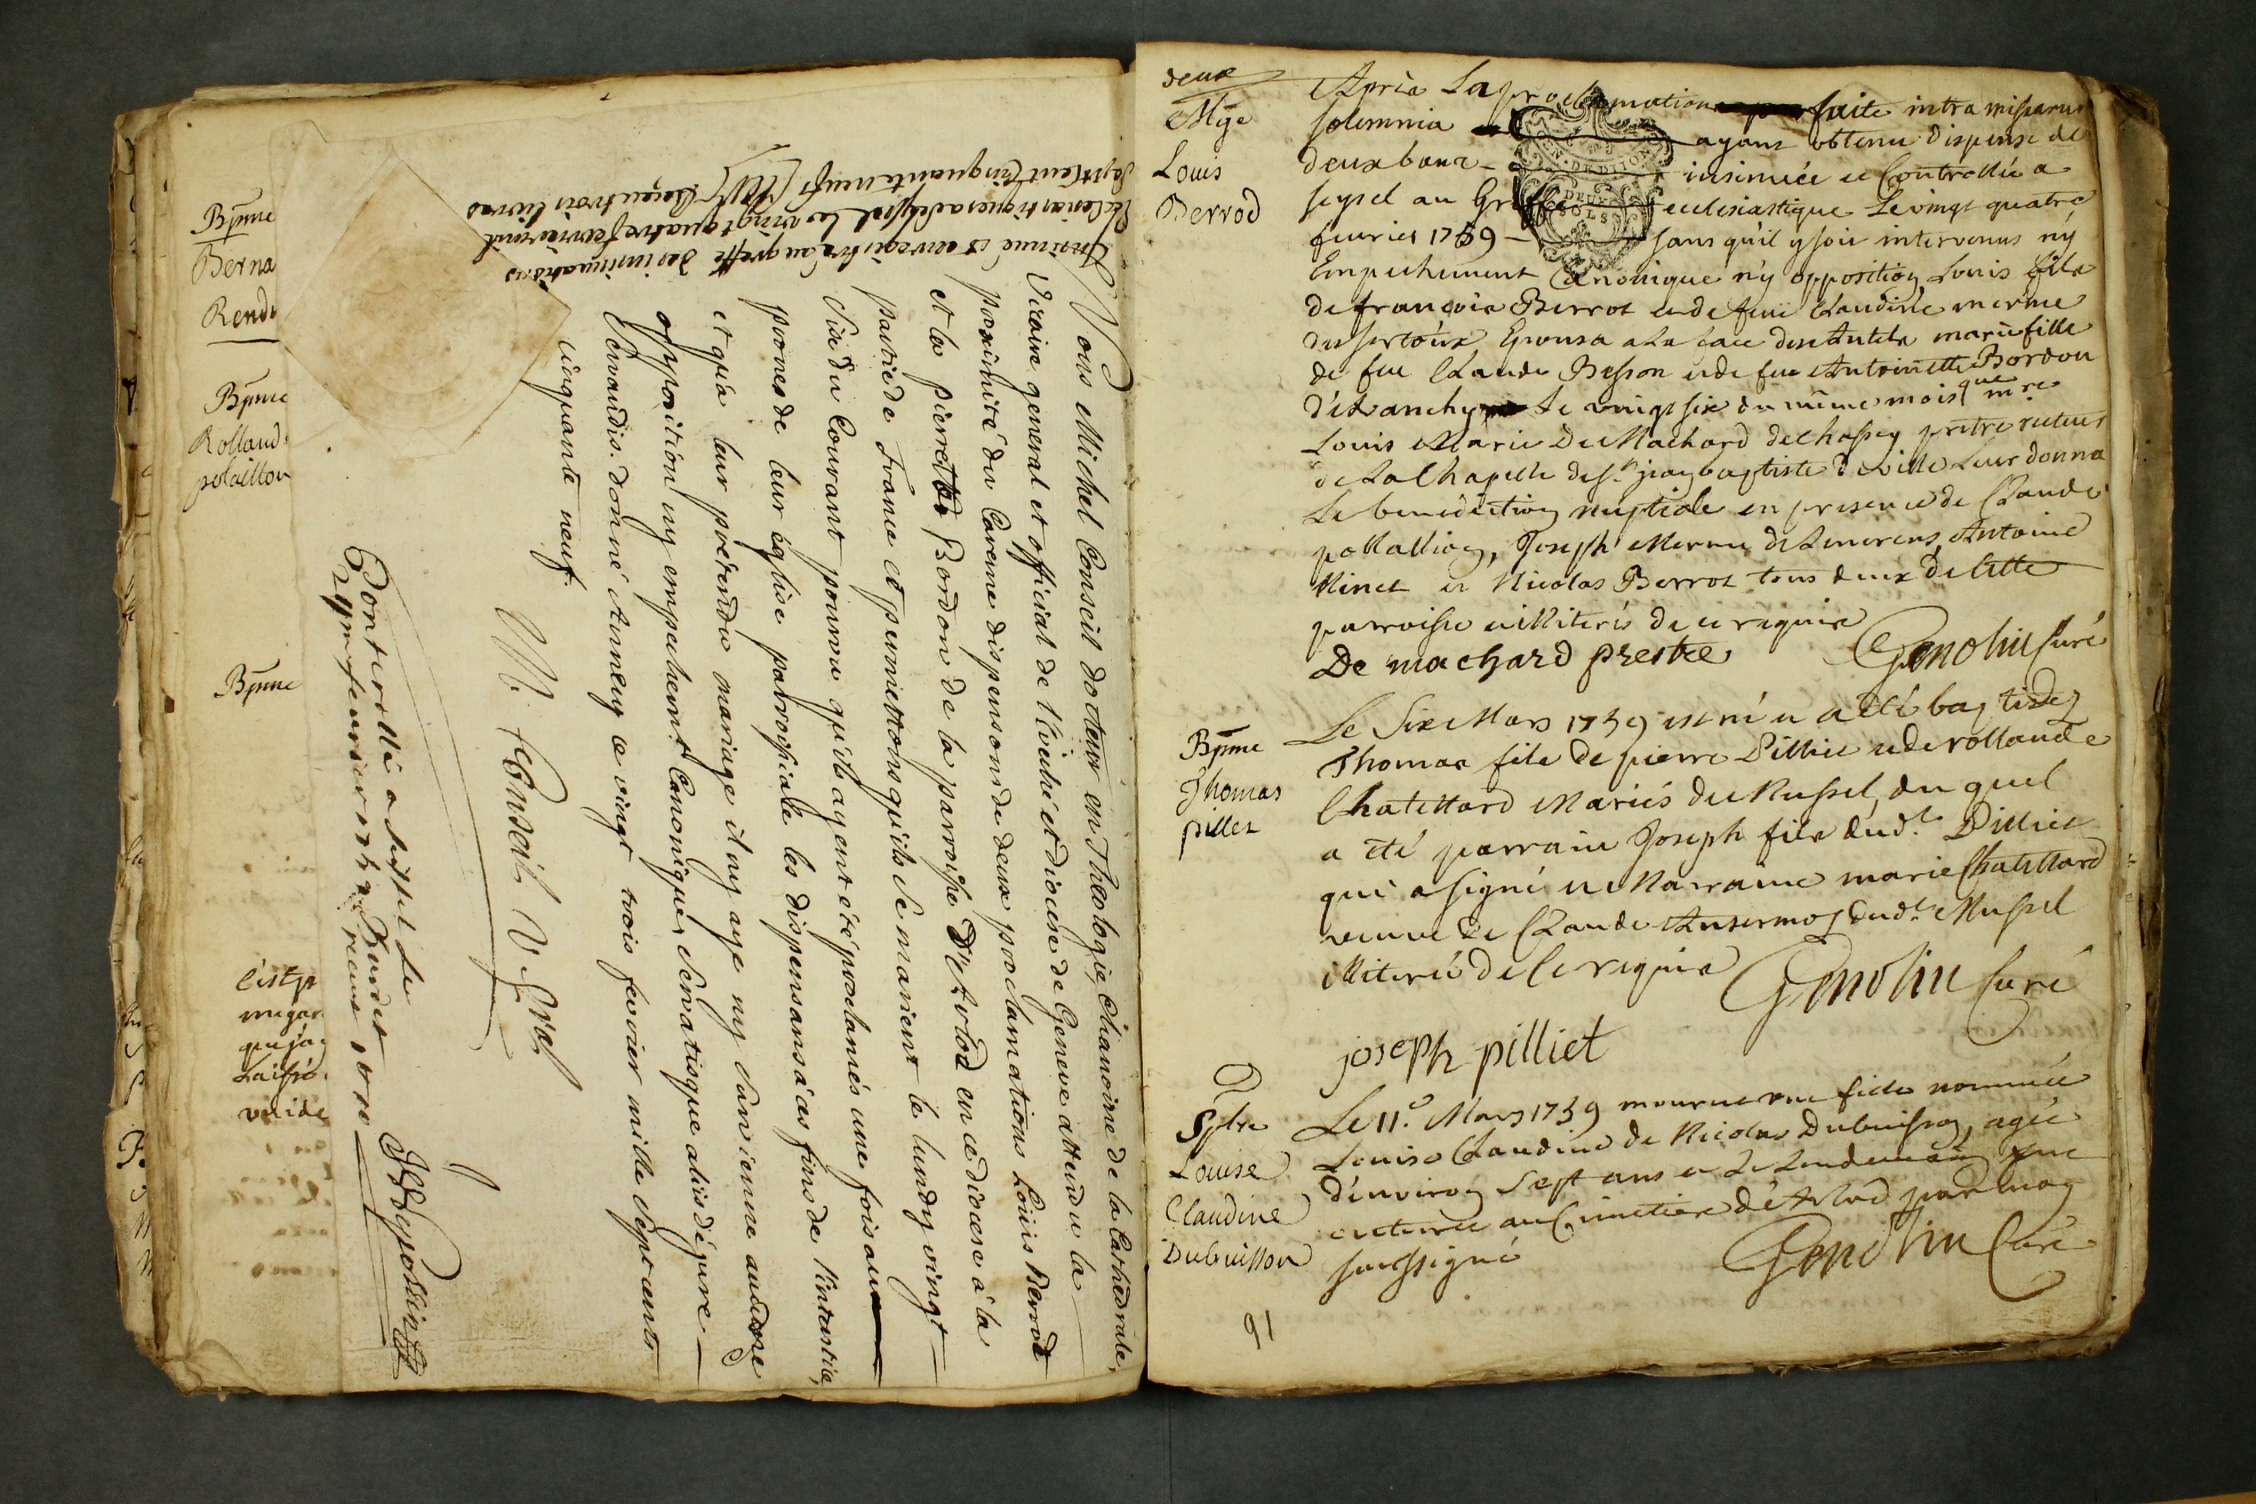 Bpme
Berna
Rende
Bpme
Rolland
polaillon
Bpme
C'est p
megar
que ja
Laissé
vuide
Insinué et enregistré au greffe des insinuations
Ecclesiastiques a Seyssel le vingt quatre fevrier mil
Sept Cent Cinquante neuf Reçeu trois livres
Nous Michel Conseil docteur en Theologie, Chanoine de la Cathedrale,
Vicaire general et official de l'Evéché et diocese de Geneve attendu la
proximité du Careme dispensons de deux proclamations Loüis Berrod
et la pierrette Bordon de la paroisse D'Arlod en ce diocese à la
partie de France et permettons qu'ils se marient le lundy vingt
Six du Courrant pourvu qu'ils ayent été proclamés une fois au
prones de leur église parroissiale les dispensans à ces fins de l'interstice,
et qu'a leur prétendu mariage il n'y aye ny Survienne aucune
opposition ny empechement Canonique, Servatisque aliis de jure
Servandis. donné Annecy ce vingt trois fevrier mille Sept cents
cinquante neuf.
M. Conseil V. G'ral
Controllé a Seissel le
24me fevrier 1759
reçeu
deux
Mge
Louis
Berrod
Après La proclamation faite intra missarum
solemnia ayans obtenu dispense de
deux bans insinuée et Controllée a
seysel au Greffe ecclesiastique Le vingt quatre
fevrier 1759 sans qu'il y soit intervenus n'y
Empechement Canonique n'y opposition Louis fils
de françois Berrot et de feüe Claudine merme
des sertoux Epousa a La face des Autels marie fille
de feu Claude Besson et de feue Antoinette Bordon
d'étranchy Le vingt six du même mois que mre
Louis Marie De Machard de Chassey prêtre recteur
de La Chapelle de St jean baptiste de ville Leur donna
La benediction nuptiale en presence de Claude
pollallion, Joseph Merme de Lenorens, Antoine
Ninet et Nicolas Berrot tous deux de cette
parroisse illiterés de ce requis
De machard prestre Genolin Curé
EN · DEDITION
DEUX
SOLS
Bpme
Thomas
pillet
Le Six Mars 1759 est né et a été baptisé
Thomas fils de pierre Pilliet et de rollande
Chatellard Mariés du Mussel, du quel
a été parrain Joseph fils dud.t Pilliet
qui a signé et Marraine marie Chatellard
veuve de Claude Ansermoz dud.t Mussel
illiterée de ce requise Genolin Curé
joseph pilliet
Spltre
Louise
Claudine
Dubuisson
Le 11.e Mars 1759 mourut une fille nommée
Louise Claudine de Nicolas Dubuisson, agée
d'environ Sept ans et Le Lendemain fut
enterrée au Cimetiere d'Arlod par moy
soussigné Genolin Curé
91